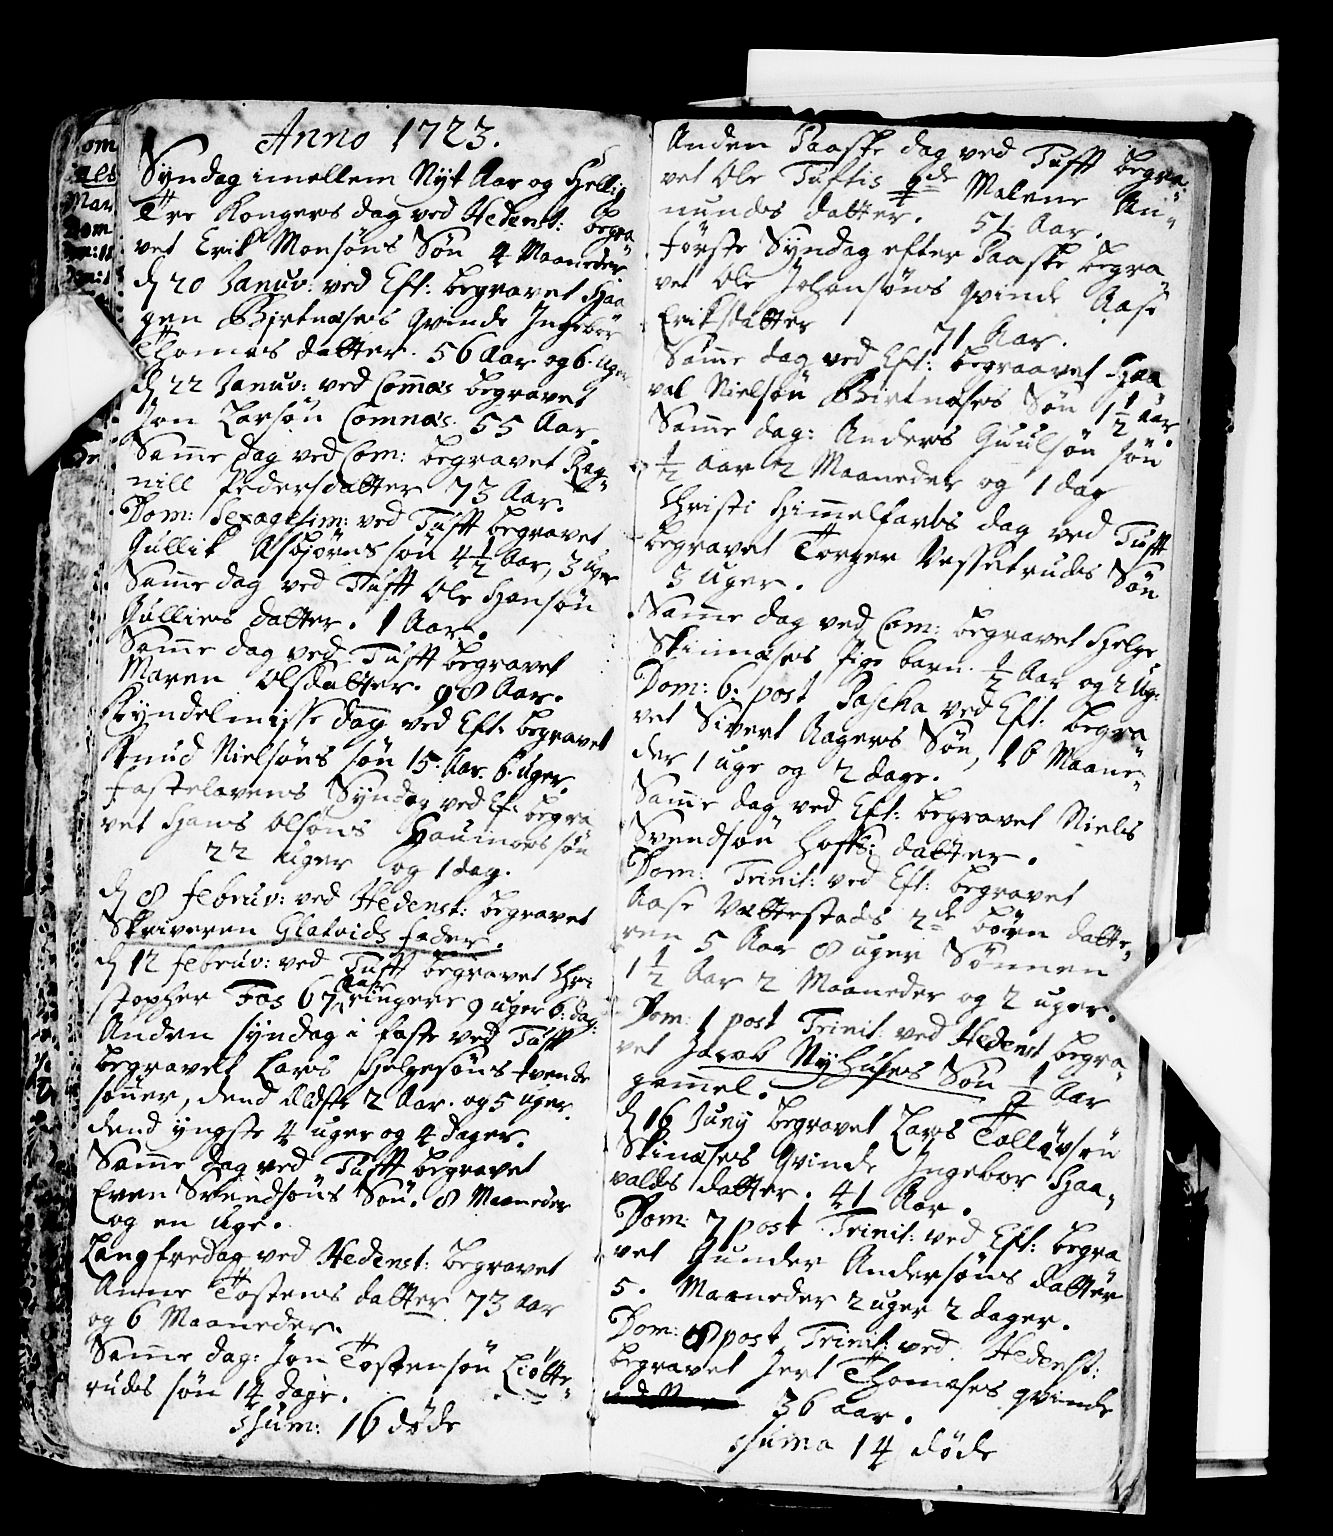 Anno 1723.
Syndag imellem Nyt Aar og Hellig
Tre Kongers dag ved Hedenst: begra
vet Erik Monsøns Søn 4 Maaneder.
d 20 Januv: ved Eft: begravet Haa
gen Birtnæses Qvinde Ingebor
Thomas datter. 56 Aar og 6. uger
d 22 Januv: ved Comnæs begravet
Jon Larsøn Comnæs. 55 Aar.
Same dag ved Com: begravet Rag-
nill Pedersdatter 73 Aar.
Dom: Sexagesim: ved Tufft begravet
Gullik Asbjørns søn 4½ Aar, 3 uger
Same dag ved Tufft Ole Hansøn
Gulliers datter. 1 Aar.
Same dag ved Tufft begravet
Maren Olsdatter. 98 Aar.
Kyndelmisse dag ved Eft: begravet
Knud Nielsøns søn 15. Aar. 6. uger.
Fastelavens Syndag ved Ef: begra
vet Hans Olsøns søn
22 uger og 1 dag.
d 8 febrúv: ved Hedenst: begravet
Skriveren Glatvids fader.
d 12 febrúv: ved Tufft begravet Chri
stopher Fos 67 Aar 9 uger 6. dag:
Anden syndag i faste ved Tufft
begravett Lars Helgesøns tvende
sønner, dend Ældste 2 Aar. og 5 uger.
dend yngste 4 uger og 4 dager.
Same dag ved Tufft begravet
Even Svendsøns Søn. 8 Maaneder
og en uge.
Langfredag ved Hedenst: begravet
Anne Tostens datter 73 aar
og 6 Maaneder.
Same dag: Jon Tostensøn Liøtte-
ruds søn 14 dage.
Sum: 16 døde
Anden Paaske dag ved Tufft begra-
vet Ole Tuftis qde Malene An-
nundes datter. 51 Aar.
Første Syndag efter Paaske begra
vet Ole Johansøns qvinde Aase
Eriksdatter 71 Aar.
Same dag ved Eft: begraavet Haa
val Nielsøn Birtnæses Søn 1½ aar.
Same dag: Anders Guulsøn søn
½ aar 2 Maaneder og 1 dag
Christi Himmelfarts dag ved Tufft
begravet Torger Vessetruds Søn
3 uger.
Same dag ved Com: begravet Helge
Skinnæses pige barn. ½ Aar og 2 ug:
Dom: 6. post Pascha ved Eft: begra
vet Sivert Aagers Søn, 16 Maane-
der 1 uge og 2 dage.
Same dag ved Eft: begravet Niels
Svendsøn Hoffs: datter.
Dom: Trinit: ved Eft: begravet
Aase Vattestads 2de børn datte-
ren 5 Aar 8 uger Sønnen
1½ Aar 2 Maaneder og 2 uger.
Dom: 1 post Trinit: ved Hedenst begra-
vet Jacob Nyhuses Søn ½ Aar
gammel.
d 16 Juny begravet Lars Tolløvsøn
Skinæses Qvinde Ingebor Haa-
valds datter. 41 Aar.
Dom: 7 post Trinit: ved Eft: begra
vet Gunder Andersøns datter
5. Maaneder 2 uger 2 dager.
Dom: 8 post Trinit: ved Hedenst:
begravet Jert Thomases qvinde
36 aar.
Suma 14 døde